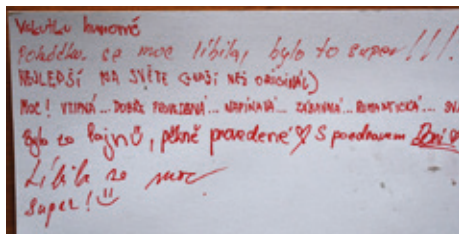 Vskutku humorné
Pohádka se moc líbila, bylo to super!!!
NEJLEPŠÍ NA SVĚTE (LEPŠÍ NEŽ ORIGINÁL)
MOC! VTIPNÁ... DOBŘE PROVEDENÁ... NAPÍNAVÁ... ZÁBAVNÁ... ROMANTICKÁ...
Bylo to fajnů, pěkně provedené S pozdravem
Líbila se moc
Super!